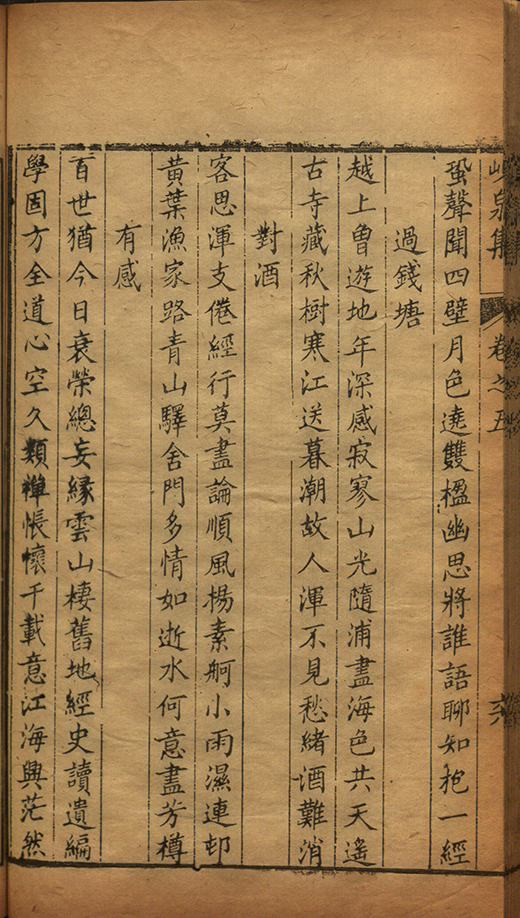 峴泉集 卷之五 六
蛩聲聞四壁月色遶雙楹幽思將誰語聊知抱一經
過錢塘
越上曾遊地年深感寂寥山光隨浦盡海色共天遙
古寺藏秋樹寒江送暮潮故人渾不見愁緒酒難消
對酒
客思渾支倦經行莫盡論順風楊素舸小雨濕連邨
黃葉漁家路青山驛舍門多情如逝水何意盡芳樽
有感
百世猶今日衰榮總妄緣雲山棲舊地經史讀遺編
學固方全道心空久類禪悵懷千載意江海興茫然